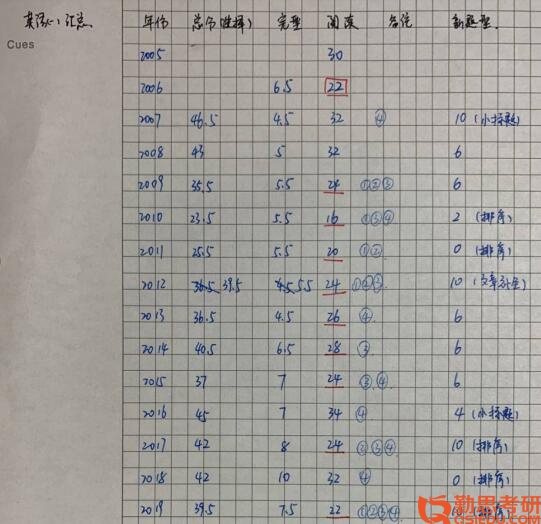 英语(一)汇总 年份 总分(选择) 完型 阅读 备注 新题型
Cues
2005 30
2006 6.5 22
2007 46.5 4.5 32 ④ 10 (小标题)
2008 43 5 32 6
2009 35.5 5.5 24 ①②③ 6
2010 23.5 5.5 16 ①③④ 2 (排序)
2011 25.5 5.5 20 ①② 0 (排序)
2012 39.5 5.5 24 10
2013 36.5 4.5 26 ④ 6
2014 40.5 6.5 28 ③ 6
2015 37 7 24 ③④ 6
2016 45 7 34 ④ 4 (小标题)
2017 42 8 24 ②③④ 10 (排序)
2018 42 10 32 ④ 0 (排序)
2019 39.5 7.5 22 ①②③④ 10 (排序)
勤思考研